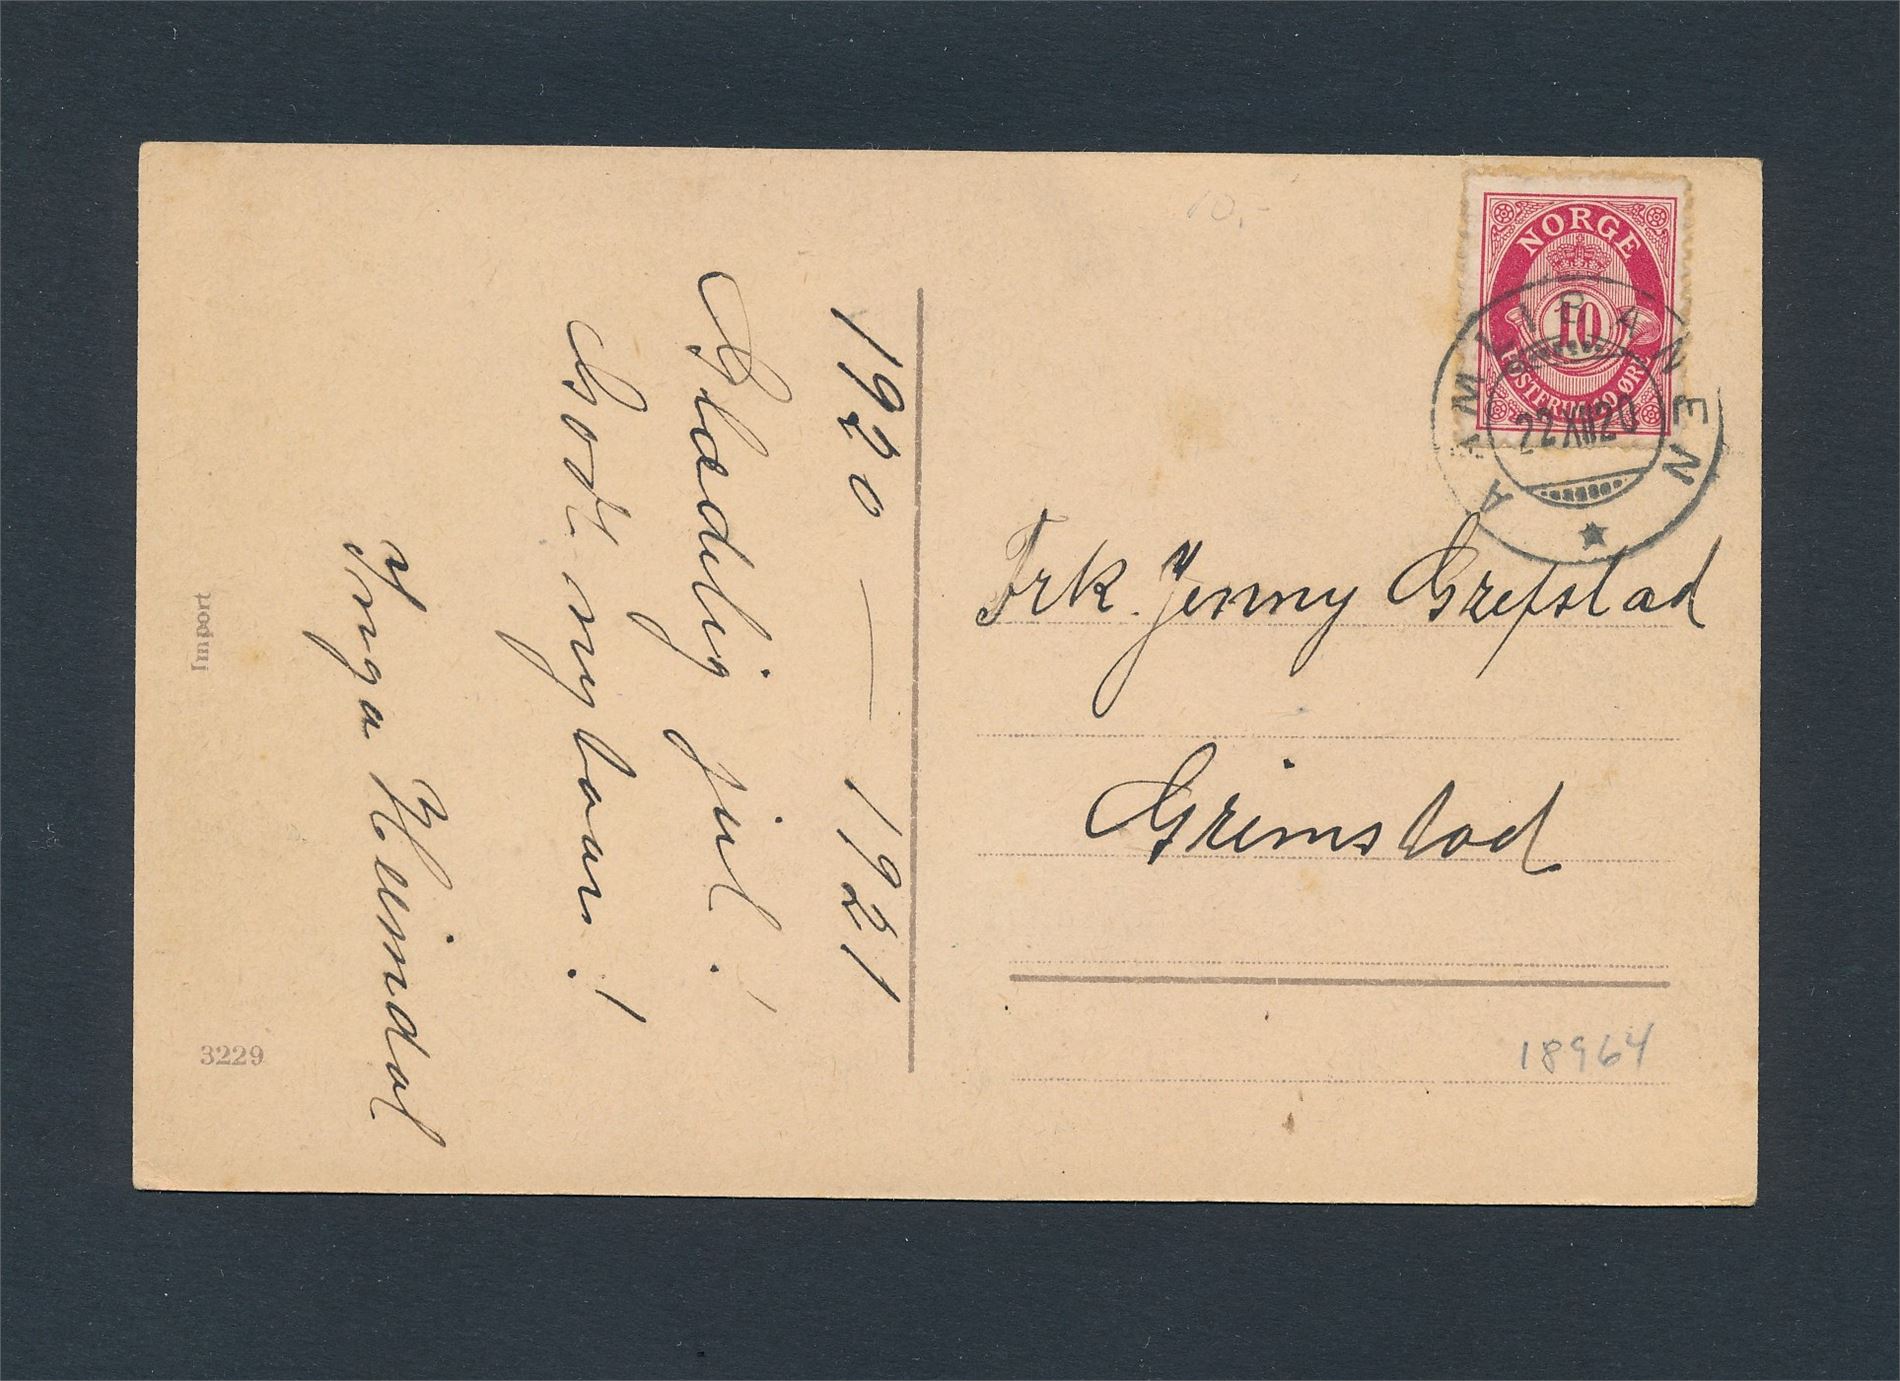 1920 — 1921
Glædelig jul!
Godt nytaar!
Inga Heimdal
Import
3229
10,-
NORGE
10
POSTFRIM 10 ØRE
AAMLIBANEN
A
22 XII 20
Frk. Jenny Grefstad
Grimstad
18964